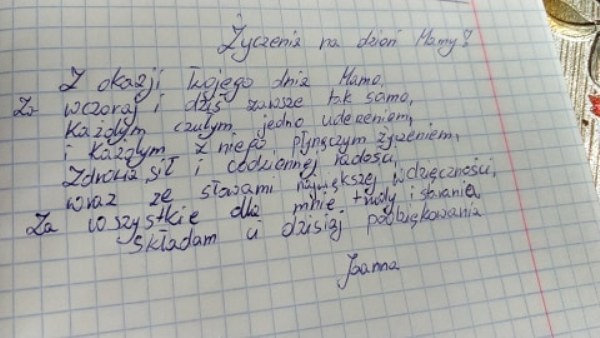 Życzenia na dzień Mamy?
Z okazji Twojego dnia Mamo,
Za wczoraj i dziś zawsze tak samo,
Każdym czułym jedno uderzeniem,
i każdym z niego płynącym życzeniem,
Zdrowia sił i codziennej radości,
wraz ze słowami największej wdzięczności,
Za wszystkie dla mnie trudy i starania
Składam Ci dzisiaj podziękowania
Joanna